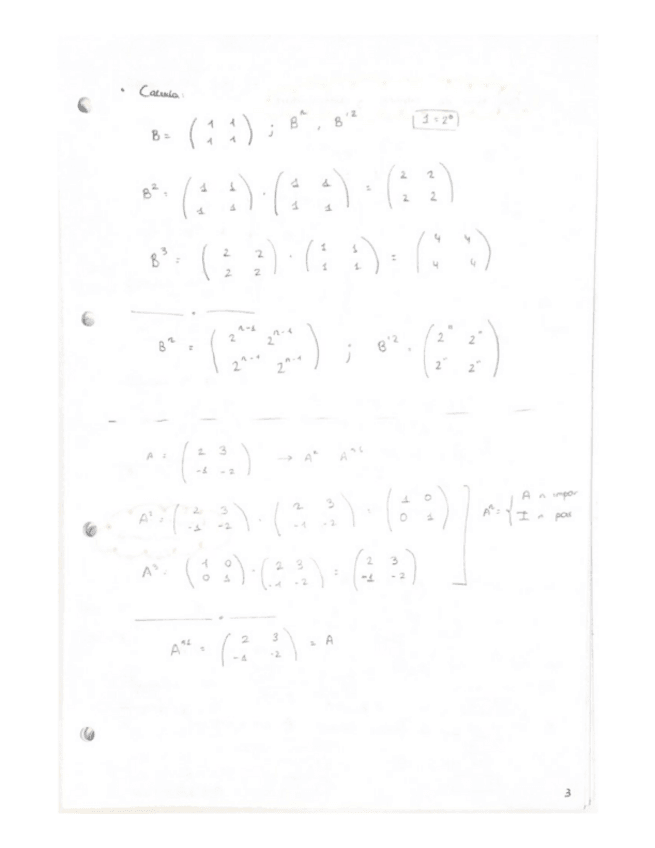 • Calcula:
B = ( 1 1 ; 1 1 ) ; Bⁿ , B¹² 1 = 2⁰
B² = ( 1 1 ; 1 1 ) · ( 1 1 ; 1 1 ) = ( 2 2 ; 2 2 )
B³ = ( 2 2 ; 2 2 ) · ( 1 1 ; 1 1 ) = ( 4 4 ; 4 4 )
Bⁿ = ( 2ⁿ⁻¹ 2ⁿ⁻¹ ; 2ⁿ⁻¹ 2ⁿ⁻¹ ) ; B¹² =
A = ( 2 3 ; -1 -2 ) → Aⁿ
A² = ( 2 3 ; -1 -2 ) · ( 2 3 ; -1 -2 ) = ( 1 0 ; 0 1 )
A³ = ( 1 0 ; 0 1 ) · ( 2 3 ; -1 -2 ) = ( 2 3 ; -1 -2 )
Aⁿ = { A n impar
I n par
= ( 2 3 ; -1 -2 ) = A
3